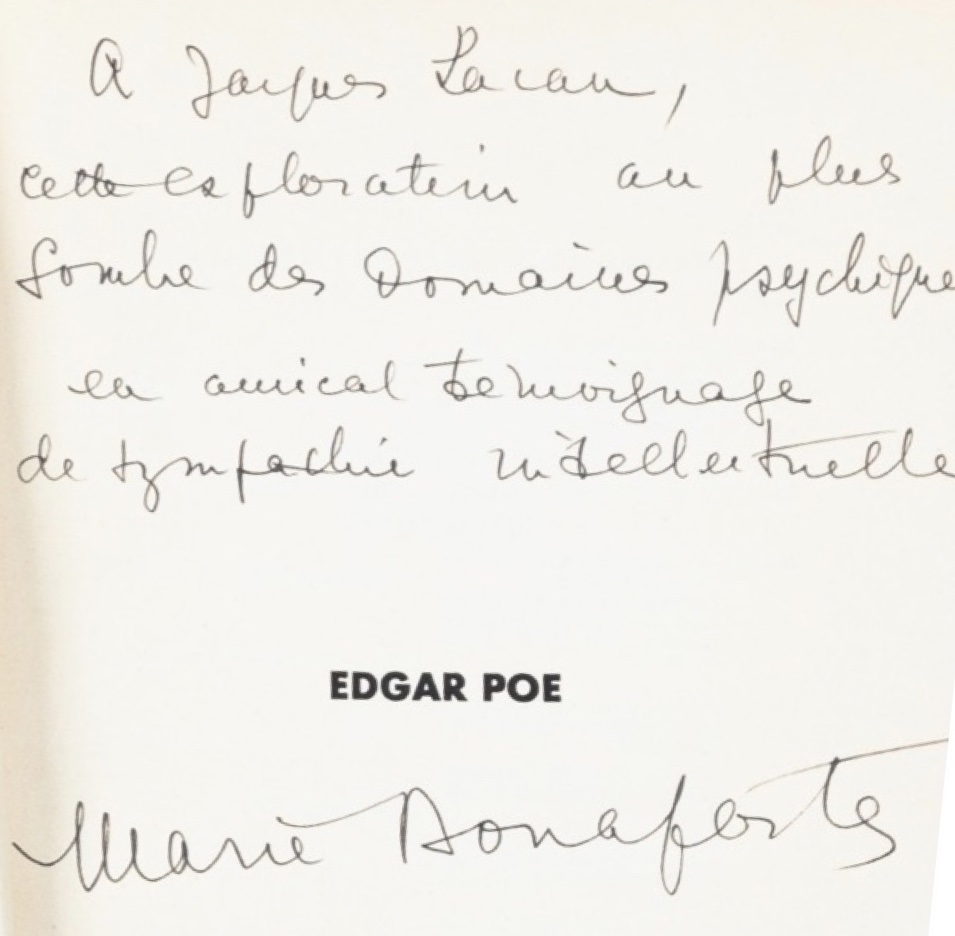 A Jacques Lacan,
cette exploration au plus
sombre des Domaines psychique
en amical témoignage
de sympathie intellectuelle
EDGAR POE
Marie Bonaparte